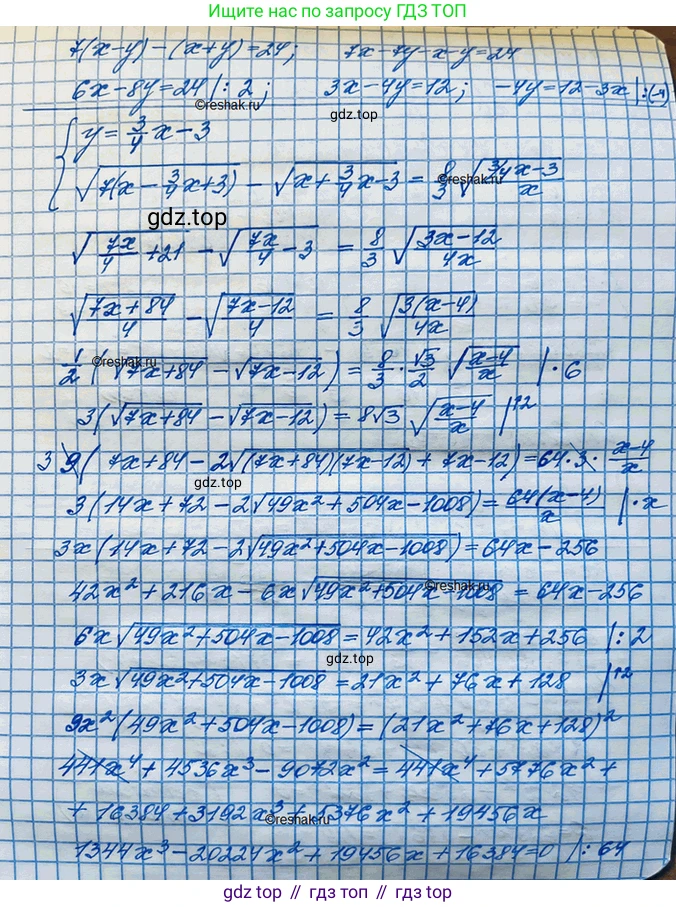 Ищите нас по запросу ГДЗ ТОП
7(x-y)-(x+y)=24; 7x-7y-x-y=24
6x-8y=24 |:2; 3x-4y=12; -4y=12-3x |:(-4)
©reshak.ru
gdz.top
{ y=3/4 x-3
√(7(x-3/4 x+3)) - √(x+3/4 x-3) = 8/3 √((3/4 x-3)/x)
©reshak.ru
gdz.top
√(7x/4+21) - √(7x/4-3) = 8/3 √((3x-12)/4x)
√((7x+84)/4) - √((7x-12)/4) = 8/3 √(3(x-4)/4x)
1/2 (√(7x+84) - √(7x-12)) = 8/3 · √3/2 √((x-4)/x) | · 6
©reshak.ru
3(√(7x+84) - √(7x-12)) = 8√3 √((x-4)/x) |↑2
3 9(7x+84-2√((7x+84)(7x-12)) + 7x-12) = 64·3· (x-4)/x
gdz.top
3(14x+72-2√(49x²+504x-1008)) = 64(x-4)/x | · x
3x(14x+72-2√(49x²+504x-1008)) = 64x-256
42x²+216x-6x√(49x²+504x-1008) = 64x-256
©reshak.ru
6x√(49x²+504x-1008) = 42x²+152x+256 |:2
gdz.top
3x√(49x²+504x-1008) = 21x²+76x+128 |↑2
9x²(49x²+504x-1008) = (21x²+76x+128)²
441x⁴+4536x³-9072x² = 441x⁴+5776x²+
+16384+3192x³+5376x²+19456x
©reshak.ru
1344x³-20224x²+19456x+16384=0 |:64
gdz.top // гдз.топ // gdz.top // гдз.топ // gdz.top